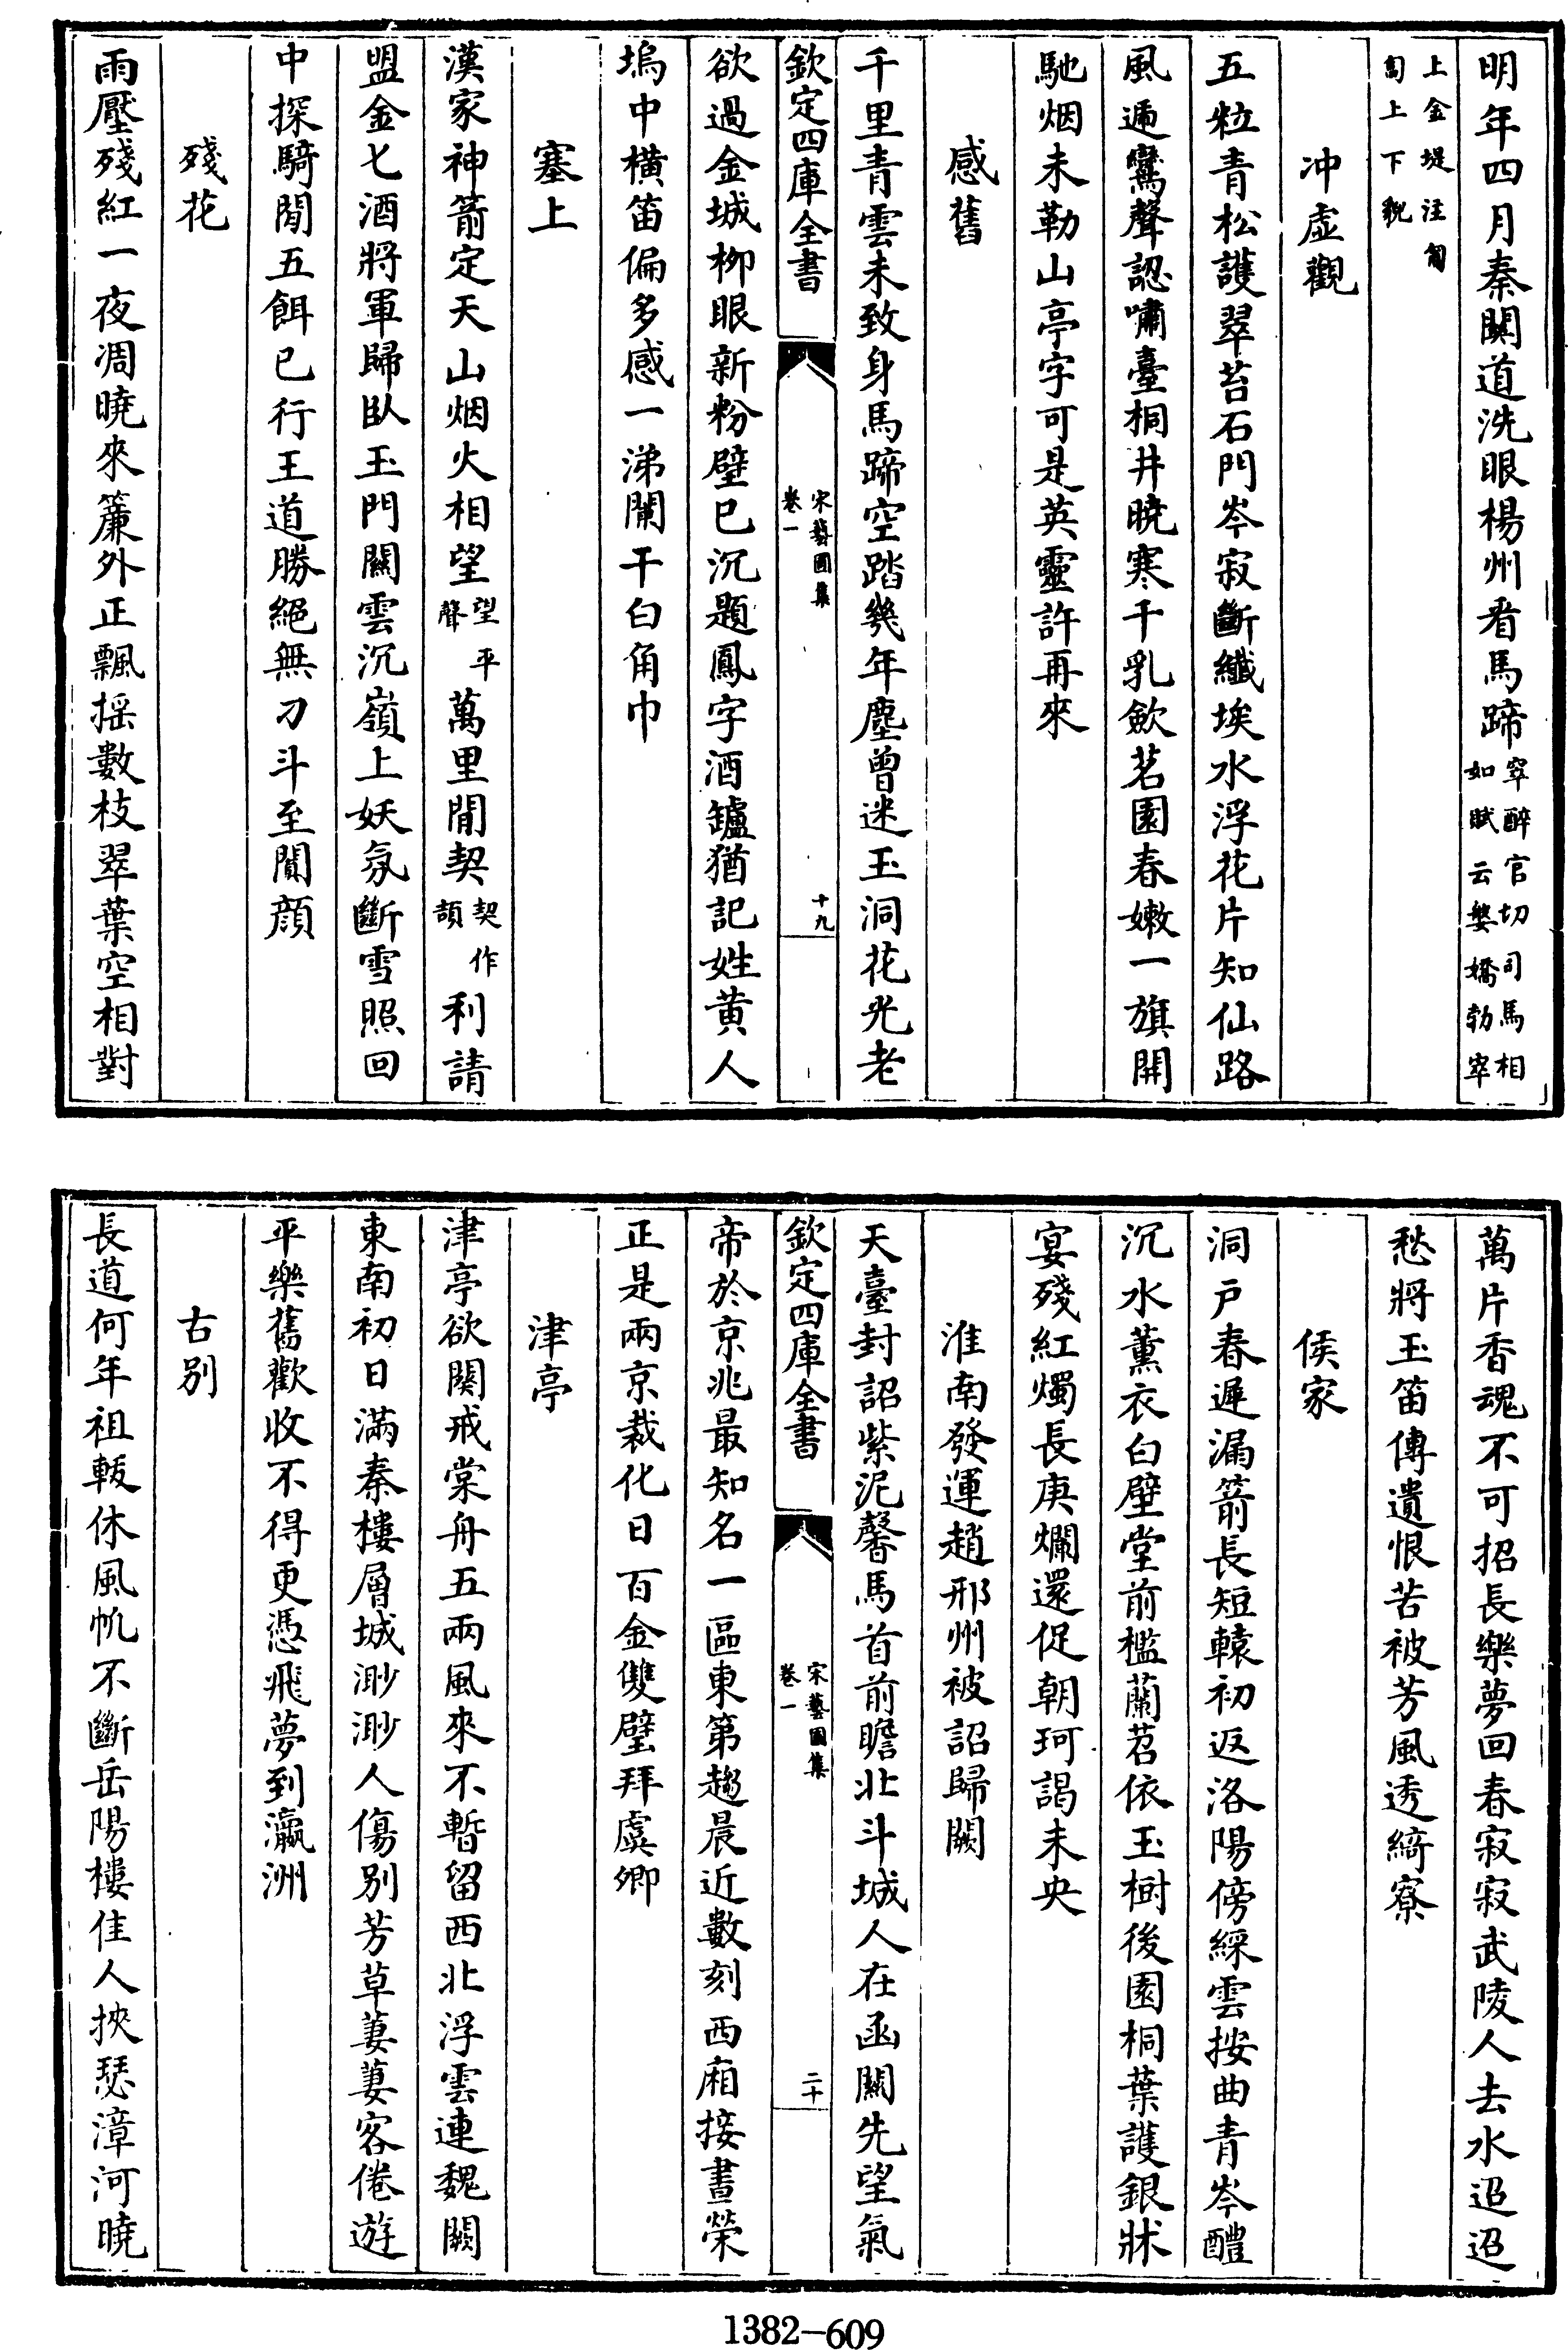 明年四月秦關道洗眼楊州看馬蹄窣醉官切司馬相如賦云媻嬌勃窣
上金堤注匍匐上下貌
冲虛觀
五粒青松護翠苔石門岑寂斷纖埃水浮花片知仙路
風遞鸞聲認嘯臺桐井曉寒千乳歛茗園春嫩一旗開
馳烟未勒山亭字可是英靈許再來
感舊
千里青雲未致身馬蹄空踏幾年塵曾迷玉洞花光老
欽定四庫全書
宋藝圃集
卷一
十九
欲過金城柳眼新粉壁已沉題鳳字酒罏猶記姓黃人
塢中橫笛偏多感一涕闌干白角巾
塞上
漢家神箭定天山烟火相望望平聲萬里閒契契作頡利請
盟金匕酒將軍歸臥玉門關雲沉嶺上妖氛斷雪照回
中探騎閒五餌已行王道勝絕無刀斗至闐顔
殘花
雨壓殘紅一夜凋曉來簾外正飄搖數枝翠葉空相對
萬片香魂不可招長樂夢回春寂寂武陵人去水迢迢
愁將玉笛傳遺恨苦被芳風透綺寮
侯家
洞戶春遲漏箭長短轅初返洛陽傍綵雲按曲青岑醴
沉水薰衣白壁堂前檻蘭苕依玉樹後園桐葉護銀牀
宴殘紅燭長庚爛還促朝珂謁未央
淮南發運趙邢州被詔歸闕
天臺封詔紫泥馨馬首前瞻北斗城人在函關先望氣
欽定四庫全書
宋藝圃集
卷一
二十
帝於京兆最知名一區東第趨晨近數刻西廂接晝榮
正是兩京裁化日百金雙璧拜虞卿
津亭
津亭欲闋戒棠舟五兩風來不暫留西北浮雲連魏闕
東南初日滿秦樓層城渺渺人傷別芳草萋萋客倦遊
平樂舊歡收不得更憑飛夢到瀛洲
古別
長道何年祖軷休風帆不斷岳陽樓佳人挾瑟漳河曉
1382-609